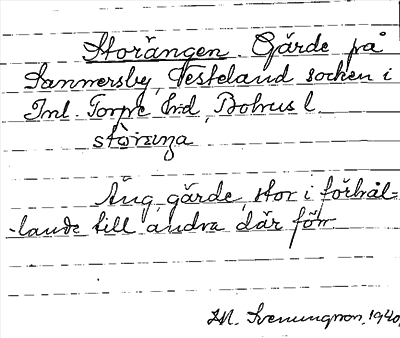 Storängen. Gärde på
Sannersby, Vesteland socken i
Inl. Torpe hrd, Bohus l.
stòrænga
Äng, gärde, stor i förhål-
-lande till andra där förr
M. Svenungson, 1940.